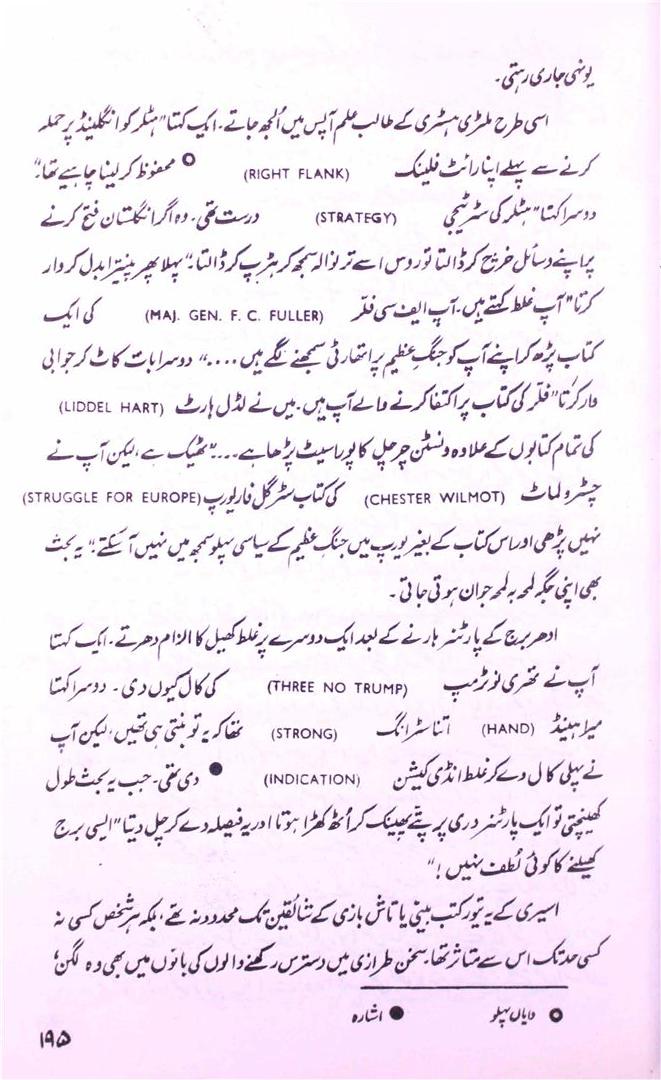 یونہی جاری رہتی۔
اسی طرح ملٹری ہسٹری کے طالب علم آپس میں اُلجھ جاتے۔ ایک کہتا "ہٹلر کو انگلینڈ پر حملہ
کرنے سے پہلے اپنا رائٹ فلینک (RIGHT FLANK) محفوظ کر لینا چاہیے تھا۔"
دوسرا کہتا "ہٹلر کی سٹریٹیجی (STRATEGY) درست تھی۔ وہ اگر انگلستان فتح کرنے
پر اپنے وسائل خرچ کر ڈالتا تو روس اسے تر نوالہ سمجھ کر ہڑپ کر ڈالتا۔" پہلا پھر پینترا بدل کر وار
کرتا "آپ غلط کہتے ہیں۔ آپ ایف سی فلر (MAJ. GEN. F. C. FULLER) کی ایک
کتاب پڑھ کر اپنے آپ کو جنگِ عظیم پر اتھارٹی سمجھنے لگے ہیں ...." دوسرا بات کاٹ کر جوابی
وار کرتا "فلر کی کتاب پر اکتفا کرنے والے آپ ہیں۔ میں نے لڈل ہارٹ (LIDDEL HART)
کی تمام کتابوں کے علاوہ ونسٹن چرچل کا پورا سیٹ پڑھا ہے ..." "ٹھیک ہے، لیکن آپ نے
چسٹر ولماٹ (CHESTER WILMOT) کی کتاب سٹرگل فار یورپ (STRUGGLE FOR EUROPE)
نہیں پڑھی اور اس کتاب کے بغیر یورپ میں جنگِ عظیم کے سیاسی پہلو سمجھ میں نہیں آ سکتے۔" یہ بحث
بھی اپنی جگہ لمحہ بہ لمحہ جوان ہوتی جاتی۔
ادھر برج کے پارٹنر ہارنے کے بعد ایک دوسرے پر غلط کھیل کا الزام دھرتے۔ ایک کہتا
آپ نے تھری نو ٹرمپ (THREE NO TRUMP) کی کال کیوں دی۔ دوسرا کہتا
میرا ہینڈ (HAND) اتنا سٹرانگ (STRONG) تھا کہ یہ تو بنتی ہی تھیں، لیکن آپ
نے پہلی کال دے کر غلط انڈی کیشن (INDICATION) ● دی تھی۔ جب یہ بحث طول
کھینچتی تو ایک پارٹنر دری پر پتے پھینک کر اُٹھ کھڑا ہوتا اور یہ فیصلہ دے کر چل دیتا "ایسی برج
کھیلنے کا کوئی لُطف نہیں!"
اسیری کے یہ تیور کتب بینی یا تاش بازی کے شائقین تک محدود نہ تھے، بلکہ ہر شخص کسی نہ
کسی حد تک اس سے متاثر تھا۔ سخن طرازی میں دسترس رکھنے والوں کی باتوں میں بھی وہ لگن،
○ دایاں پہلو ● اشارہ
۱۹۵